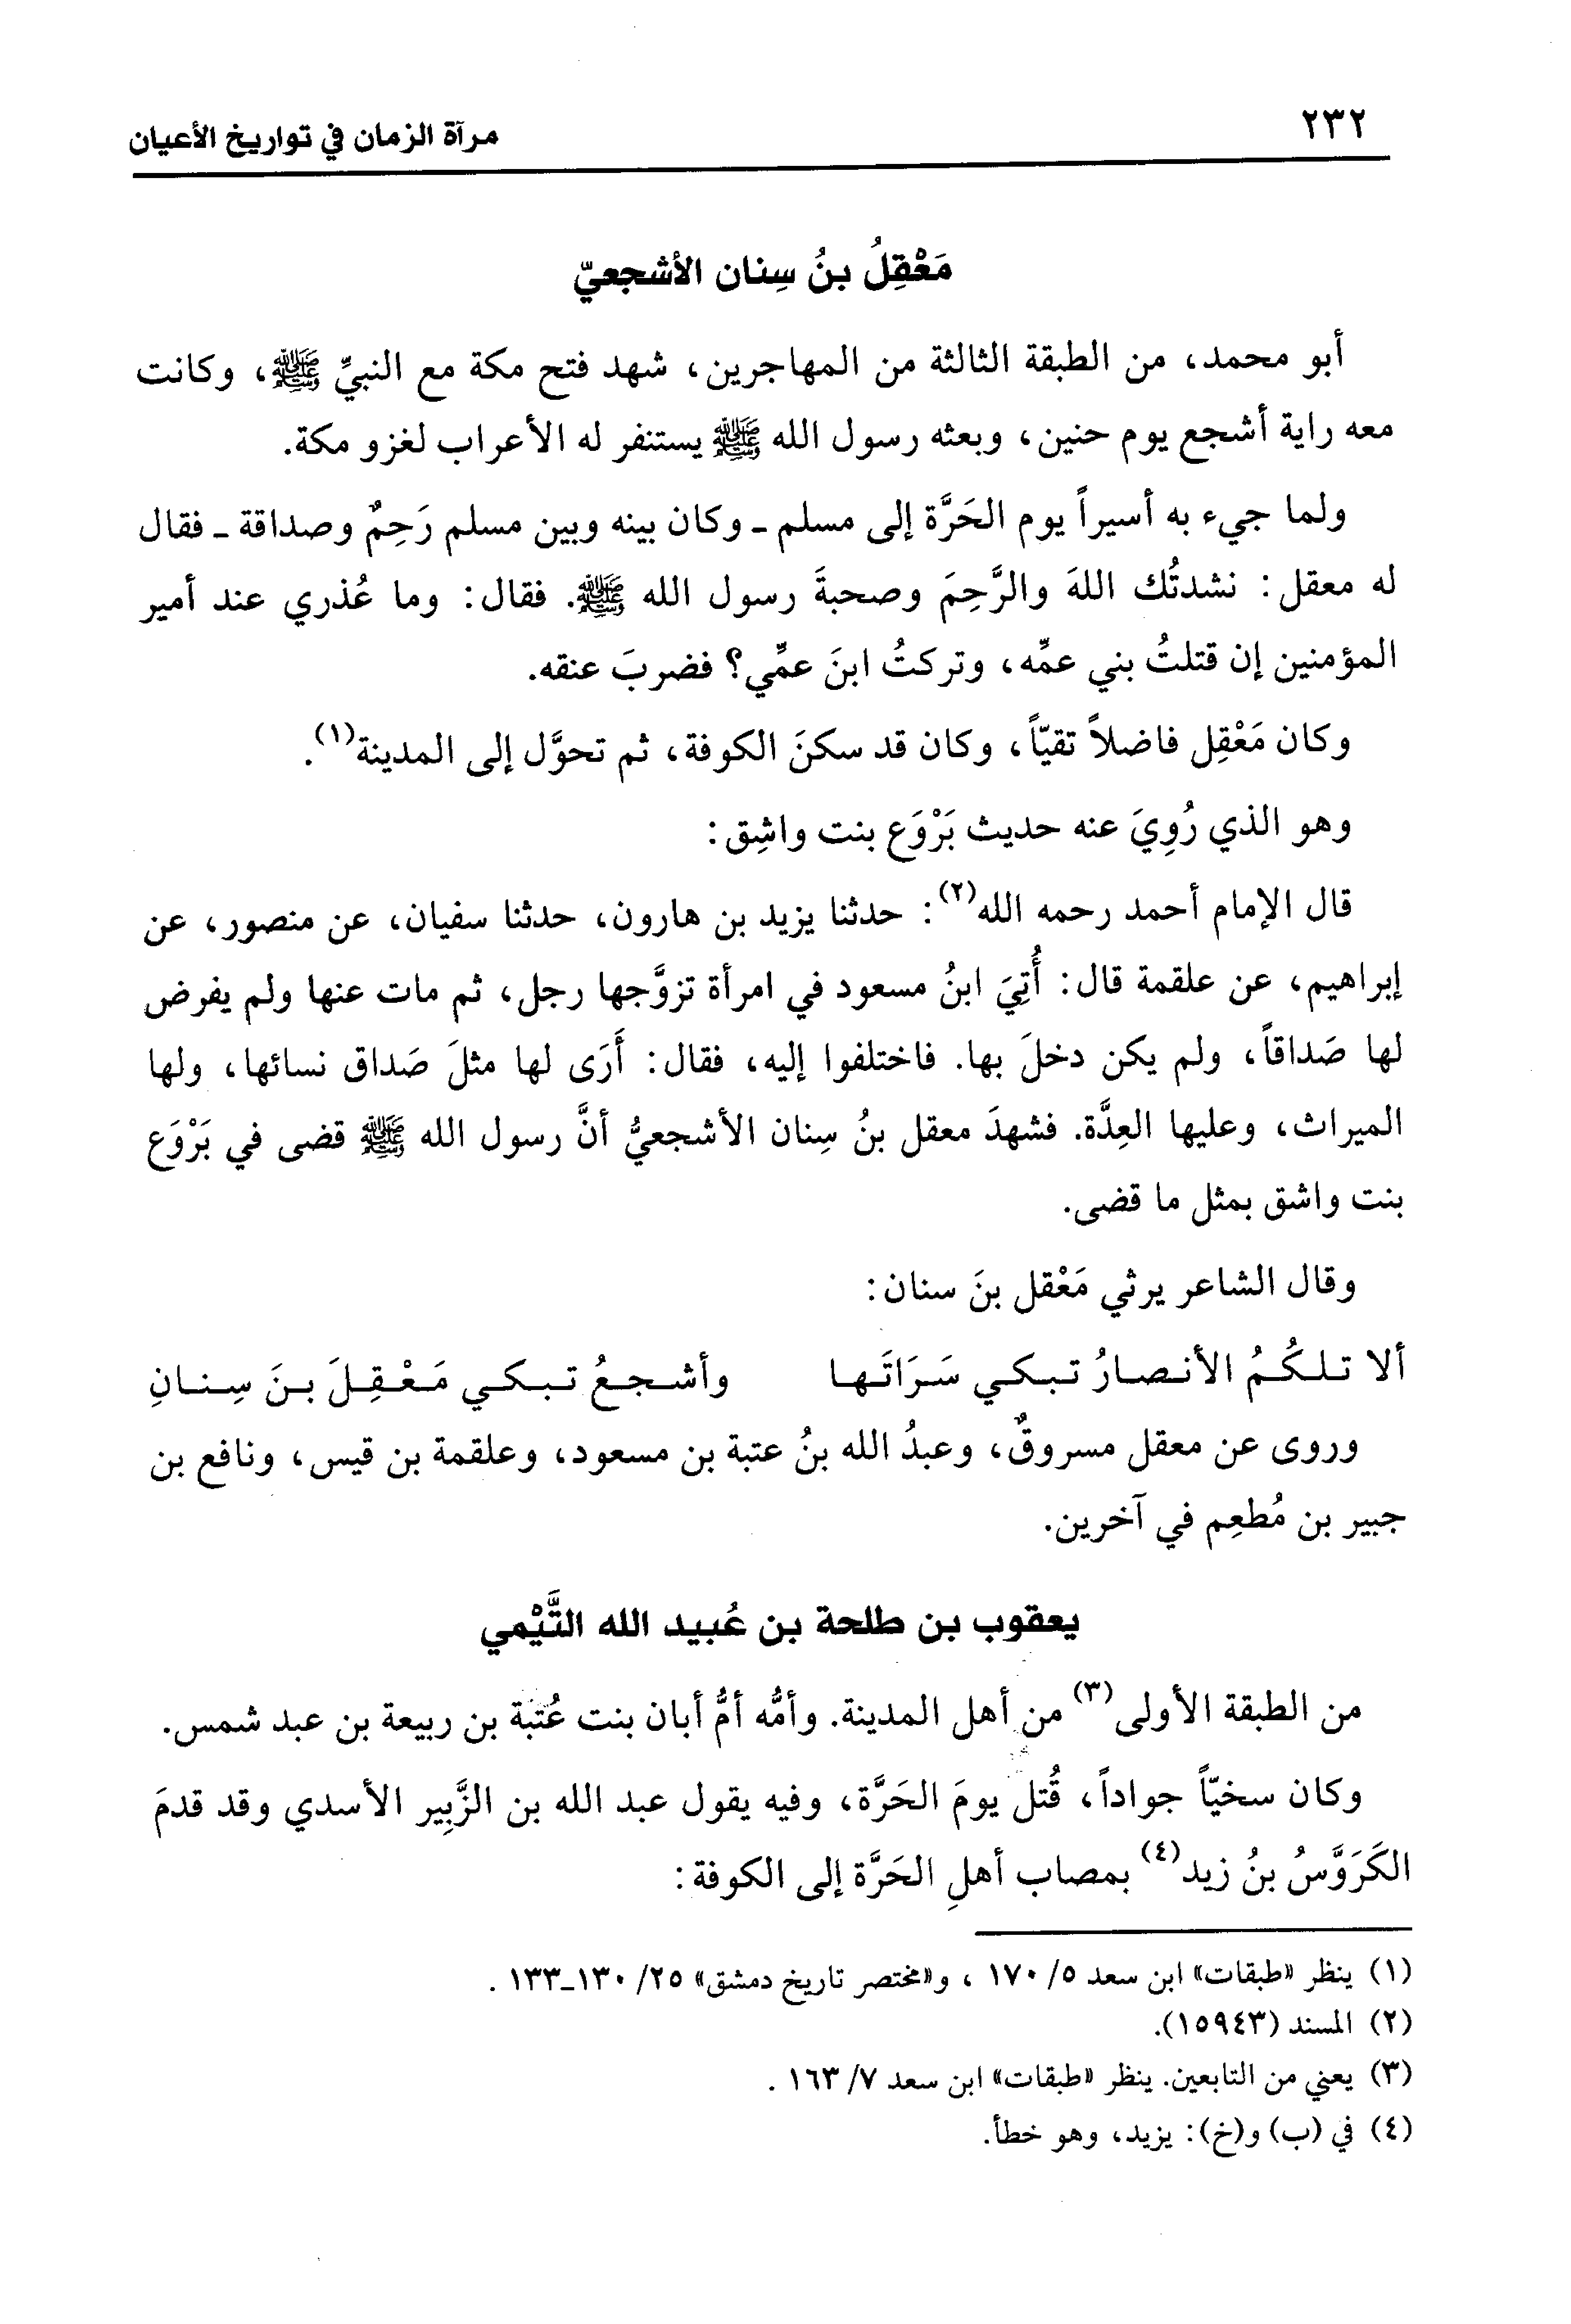 ٢٣٢
مرآة الزمان في تواريخ الأعيان
مَعْقِلُ بنُ سِنان الأشجعيّ
أبو محمد، من الطبقة الثالثة من المهاجرين، شهد فتح مكة مع النبيِّ ﷺ، وكانت
معه راية أشجع يوم حنين، وبعثه رسول الله ﷺ يستنفر له الأعراب لغزو مكة.
ولما جيء به أسيراً يوم الحَرَّة إلى مسلم ـ وكان بينه وبين مسلم رَحِمٌ وصداقة ـ فقال
له معقل: نشدتُك اللهَ والرَّحِمَ وصحبةَ رسول الله ﷺ. فقال: وما عُذري عند أمير
المؤمنين إن قتلتُ بني عمِّه، وتركتُ ابنَ عمِّي؟ فضربَ عنقه.
وكان مَعْقِل فاضلاً تقيّاً، وكان قد سكنَ الكوفة، ثم تحوَّل إلى المدينة(١).
وهو الذي رُوِيَ عنه حديث بَرْوَع بنت واشِق:
قال الإمام أحمد رحمه الله(٢): حدثنا يزيد بن هارون، حدثنا سفيان، عن منصور، عن
إبراهيم، عن علقمة قال: أُتِيَ ابنُ مسعود في امرأة تزوَّجها رجل، ثم مات عنها ولم يفرض
لها صَداقاً، ولم يكن دخلَ بها. فاختلفوا إليه، فقال: أَرَى لها مثلَ صَداق نسائها، ولها
الميراث، وعليها العِدَّة. فشهدَ معقل بنُ سِنان الأشجعيُّ أنَّ رسول الله ﷺ قضى في بَرْوَع
بنت واشق بمثل ما قضى.
وقال الشاعر يرثي مَعْقل بنَ سنان:
ألا تلكُمُ الأنصارُ تبكي سَرَاتَها وأشجعُ تبكي مَعْقِلَ بنَ سِنانِ
وروى عن معقل مسروقٌ، وعبدُ الله بنُ عتبة بن مسعود، وعلقمة بن قيس، ونافع بن
جبير بن مُطعِم في آخرين.
يعقوب بن طلحة بن عُبيد الله التَّيْمي
من الطبقة الأولى(٣) من أهل المدينة. وأمُّه أمُّ أبان بنت عُتبة بن ربيعة بن عبد شمس.
وكان سخيّاً جواداً، قُتل يومَ الحَرَّة، وفيه يقول عبد الله بن الزَّبِير الأسدي وقد قدمَ
الكَرَوَّسُ بنُ زيد(٤) بمصاب أهلِ الحَرَّة إلى الكوفة:
(١) ينظر «طبقات» ابن سعد ٥/ ١٧٠ ، و«مختصر تاريخ دمشق» ٢٥/ ١٣٠ـ١٣٣ .
(٢) المسند (١٥٩٤٣).
(٣) يعني من التابعين. ينظر «طبقات» ابن سعد ٧/ ١٦٣ .
(٤) في (ب) و(خ): يزيد، وهو خطأ.